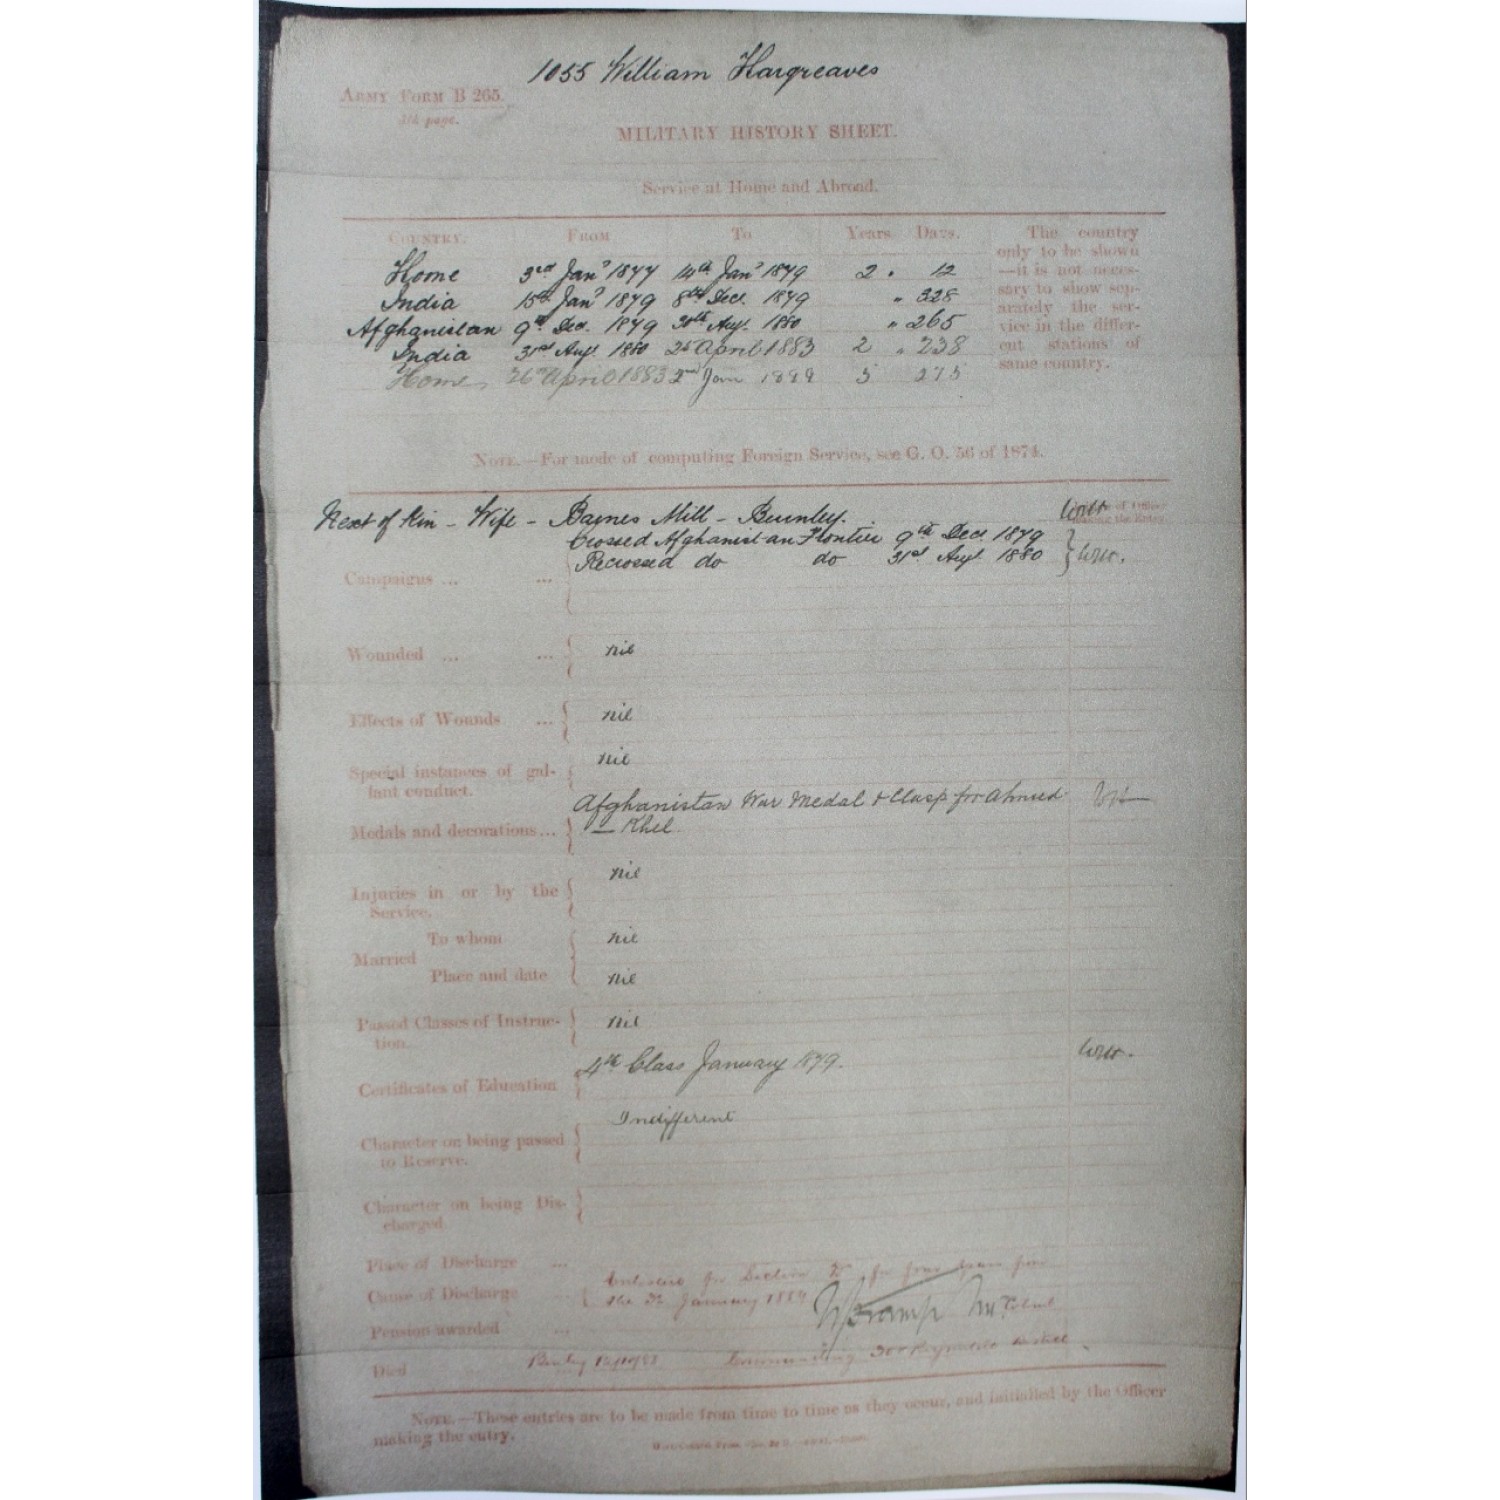 1055 William Hargreaves
ARMY FORM B 265.
MILITARY HISTORY SHEET.
Service at Home and Abroad.
COUNTRY. FROM TO Years. Days.
Home 3rd Jany 1877 14th Jany 1879 2 " 12
India 15th Jany 1879 8th Dec. 1879 " 328
Afghanistan 9th Dec. 1879 30th Augt. 1880 " 265
India 31st Augt. 1880 25 April 1883 2 " 238
Home 26th April 1883 2nd Jan 5 275
The country
only to be shown
—it is not neces-
sary to show sep-
arately the ser-
vice in the differ-
ent stations of
same country.
NOTE.—For mode of computing Foreign Service, see G. O. 56 of 1874.
Next of Kin - Wife - Barnes Mill - Burnley.
Crossed Afghanistan Frontier 9th Dec. 1879
Recrossed do do 31st. Augt. 1880
Campaigns ... ...
Wounded ... ... nil
Effects of Wounds ... nil
Special instances of gal-
lant conduct. nil
Medals and decorations... Afghanistan War Medal & Clasp for Ahmed
Khel.
Injuries in or by the
Service. nil
Married To whom nil
Place and date nil
Passed Classes of Instruc-
tion. nil
Certificates of Education 4th Class January 1879.
Character on being passed
to Reserve. Indifferent
Character on being Dis-
charged
Place of Discharge ...
Cause of Discharge January
Pension awarded ...
Died
Commanding
NOTE.—These entries are to be made from time to time as they occur, and initialled by the Officer
making the entry.